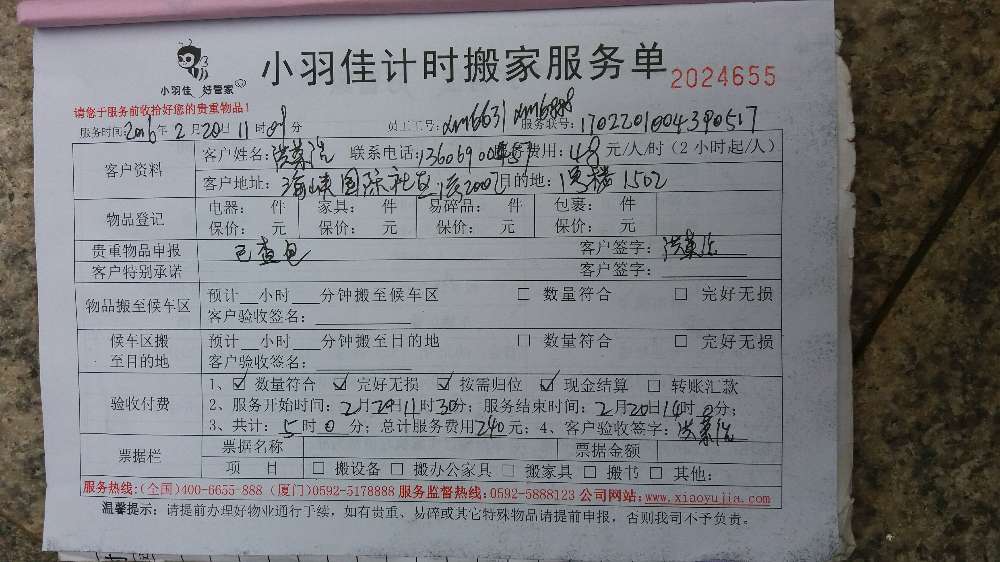 小羽佳 好管家
小羽佳计时搬家服务单 2024655
请您于服务前收拾好您的贵重物品!
服务时间:2016年2月20日11时09分 员工工号:xm6631 xm6888 服务联号:1702201004390517
客户资料 客户姓名: 联系电话: 服务费用:48元/人/时(2小时起/人)
客户地址:海峡国际社区 目的地: 1502
物品登记 电器: 件 家具: 件 易碎品: 件 包裹: 件
保价: 元 保价: 元 保价: 元 保价: 元
贵重物品申报 已查包 客户签字:
客户特别承诺 客户签字:
物品搬至候车区 预计__小时___分钟搬至候车区 □ 数量符合 □ 完好无损
客户验收签名:
候车区搬至目的地 预计__小时___分钟搬至目的地 □ 数量符合 □ 完好无损
客户验收签名:
验收付费 1、☑ 数量符合 ☑ 完好无损 ☑ 按需归位 ☑ 现金结算 □ 转账汇款
2、服务开始时间:2月20日11时30分;服务结束时间:2月20日14时0分;
3、共计:5时0分;总计服务费用240元;4、客户验收签字:
票据栏 票据名称 票据金额
项 目 □ 搬设备 □ 搬办公家具 □ 搬家具 □ 搬书 □ 其他:
服务热线:(全国)400-6655-888 (厦门)0592-5178888 服务监督热线:0592-5888123 公司网站:www.xiaoyujia.com
温馨提示: 请提前办理好物业通行手续,如有贵重、易碎或其它特殊物品请提前申报,否则我司不予负责。